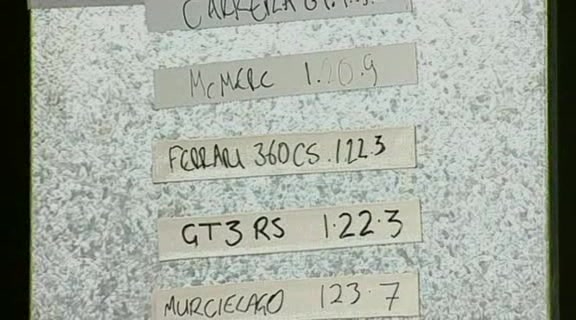 CARRERA GT
McMERC 1.20.9
FERRARI 360CS 1.22.3
GT3 RS 1.22.3
MURCIELAGO 1 23.7